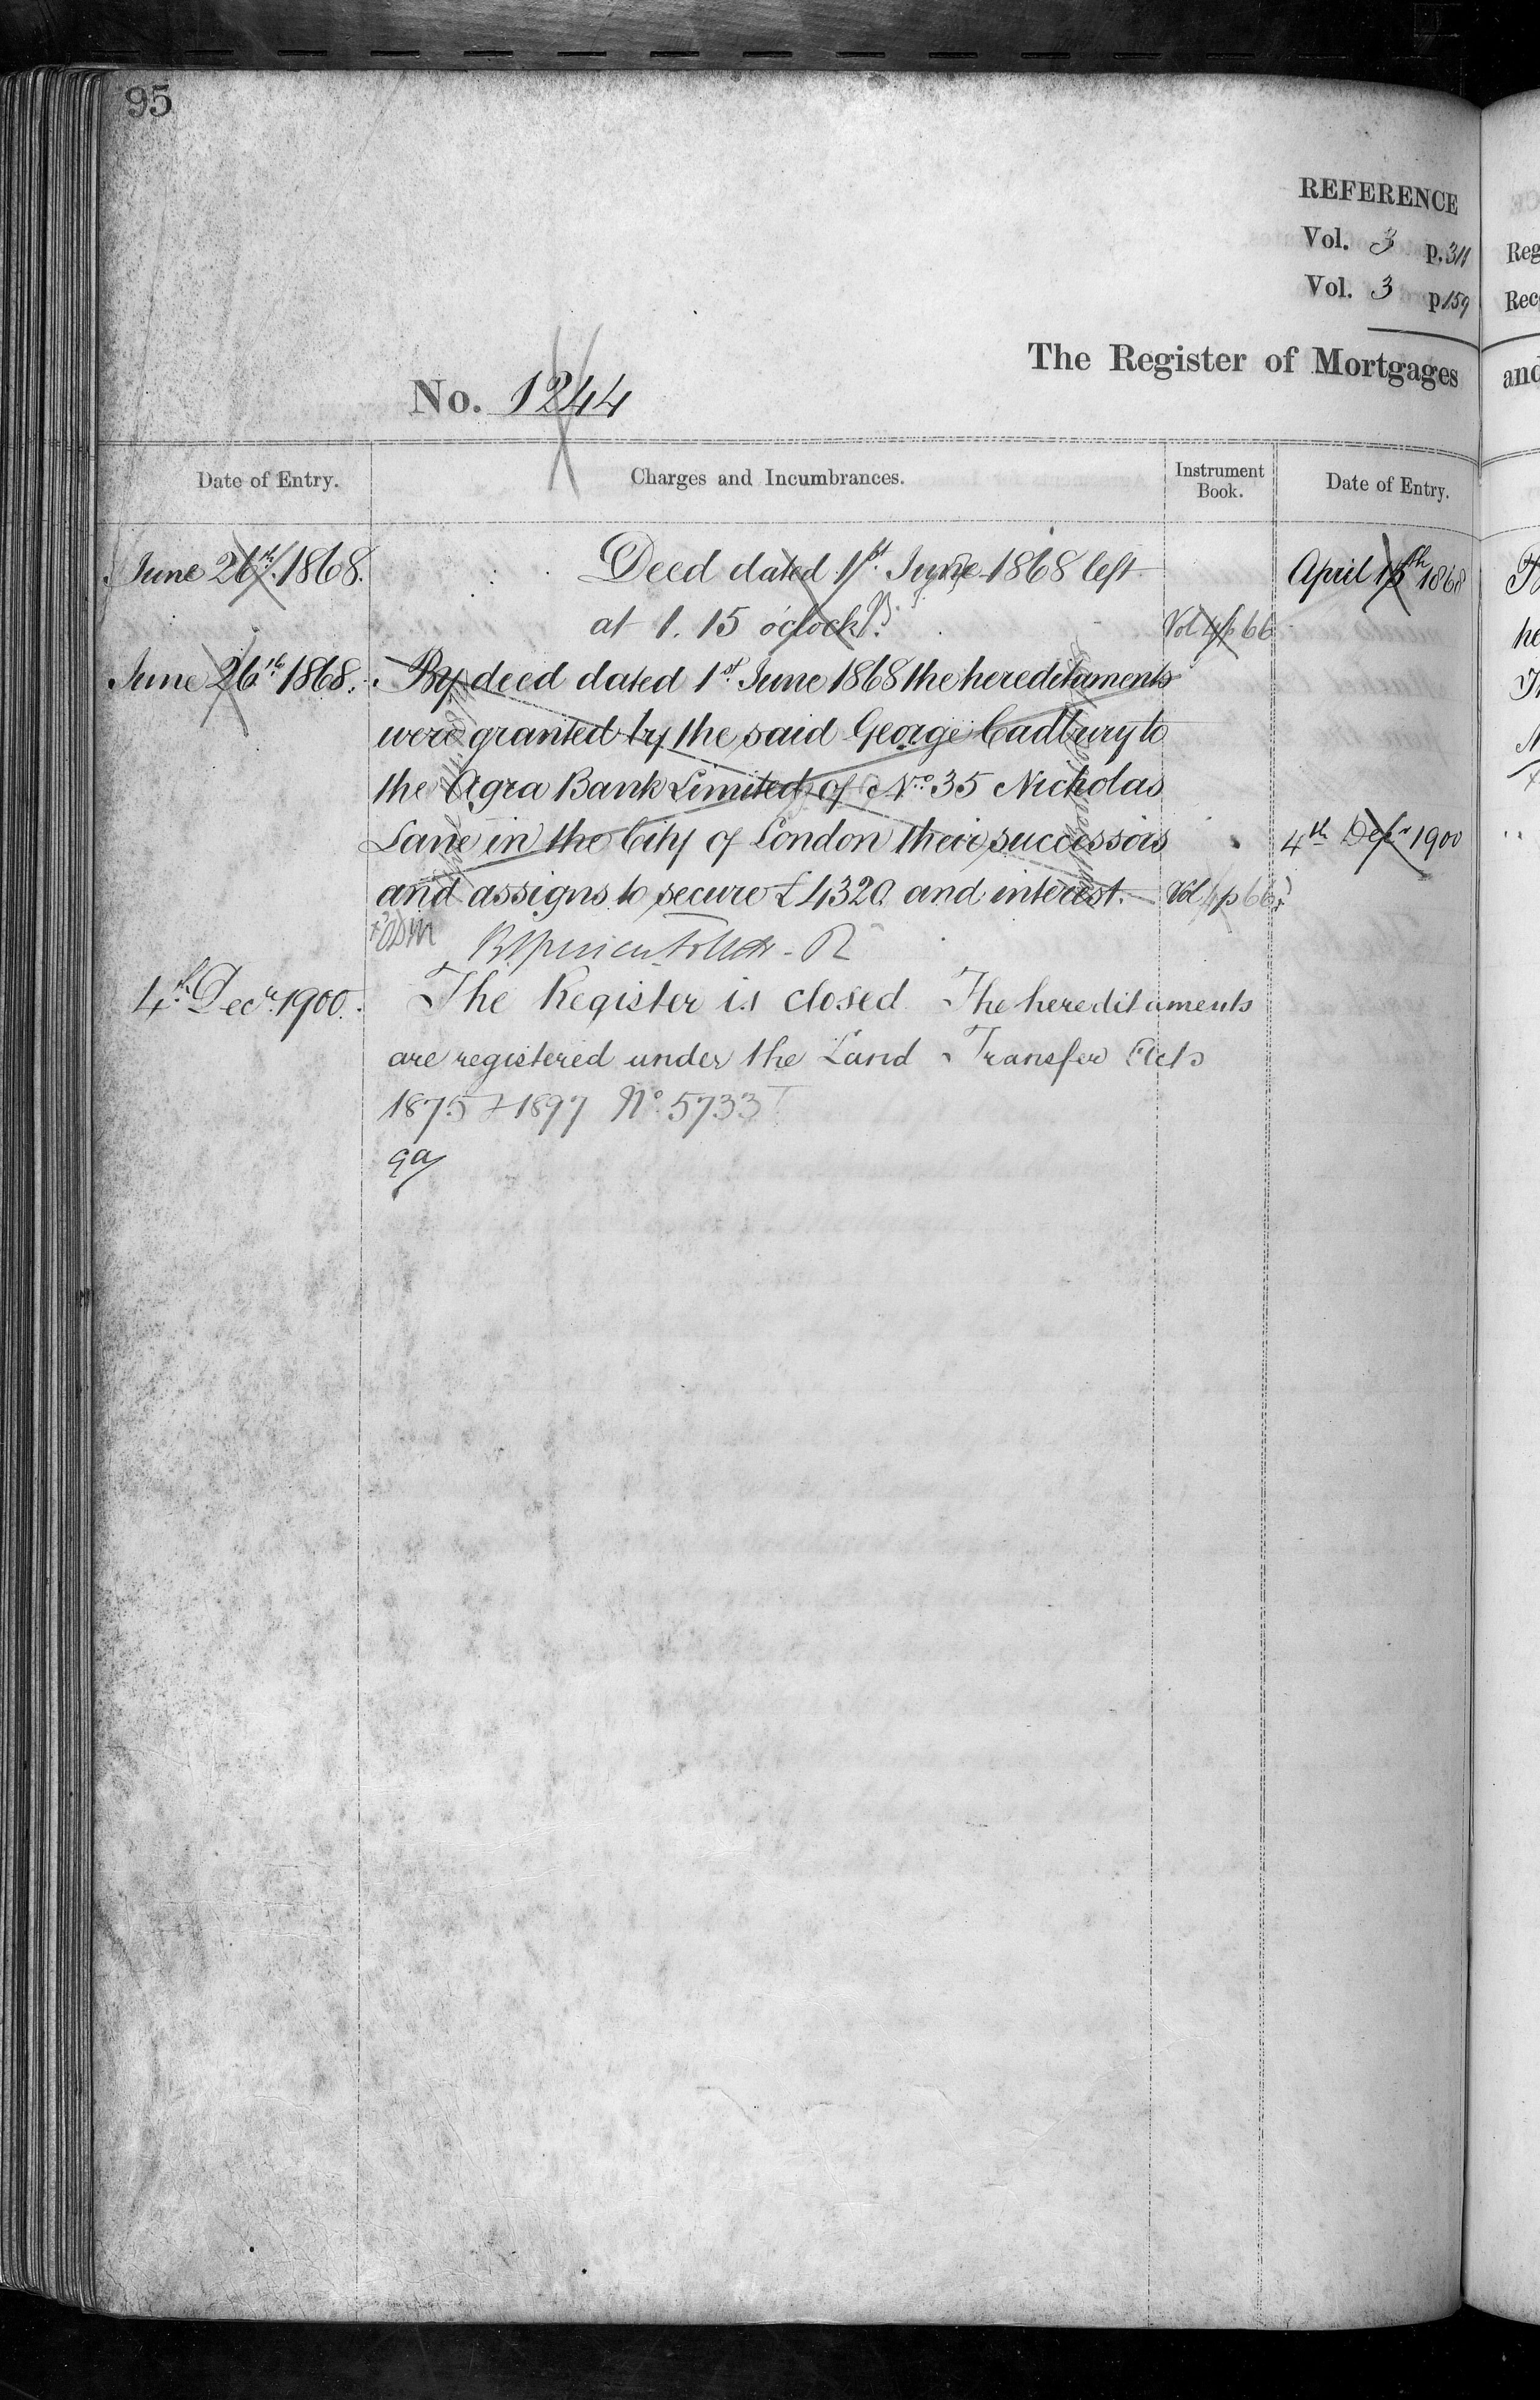 95
REFERENCE
Vol. 3 p. 311
Vol. 3 p 159
The Register of Mortgages
No. 1244
Date of Entry.
Charges and Incumbrances.
Instrument
Book.
Date of Entry.
June 26th. 1868.
Deed dated 1st. June 1868 left
at 1. 15 o'clock
Vol 4 p 66
June 26th 1868.
By deed dated 1st June 1868 the hereditaments
were granted by the said George Cadbury to
the Agra Bank Limited of No. 35 Nicholas
Lane in the City of London their successors
and assigns to secure £4320 and interest.
Vol 4 p 66
4th. Decr. 1900.
The Register is closed The hereditaments
are registered under the Land Transfer Acts
1875 + 1897 No. 5733
April 15th 1868
4th Decr 1900
Reg
Rec
and
he